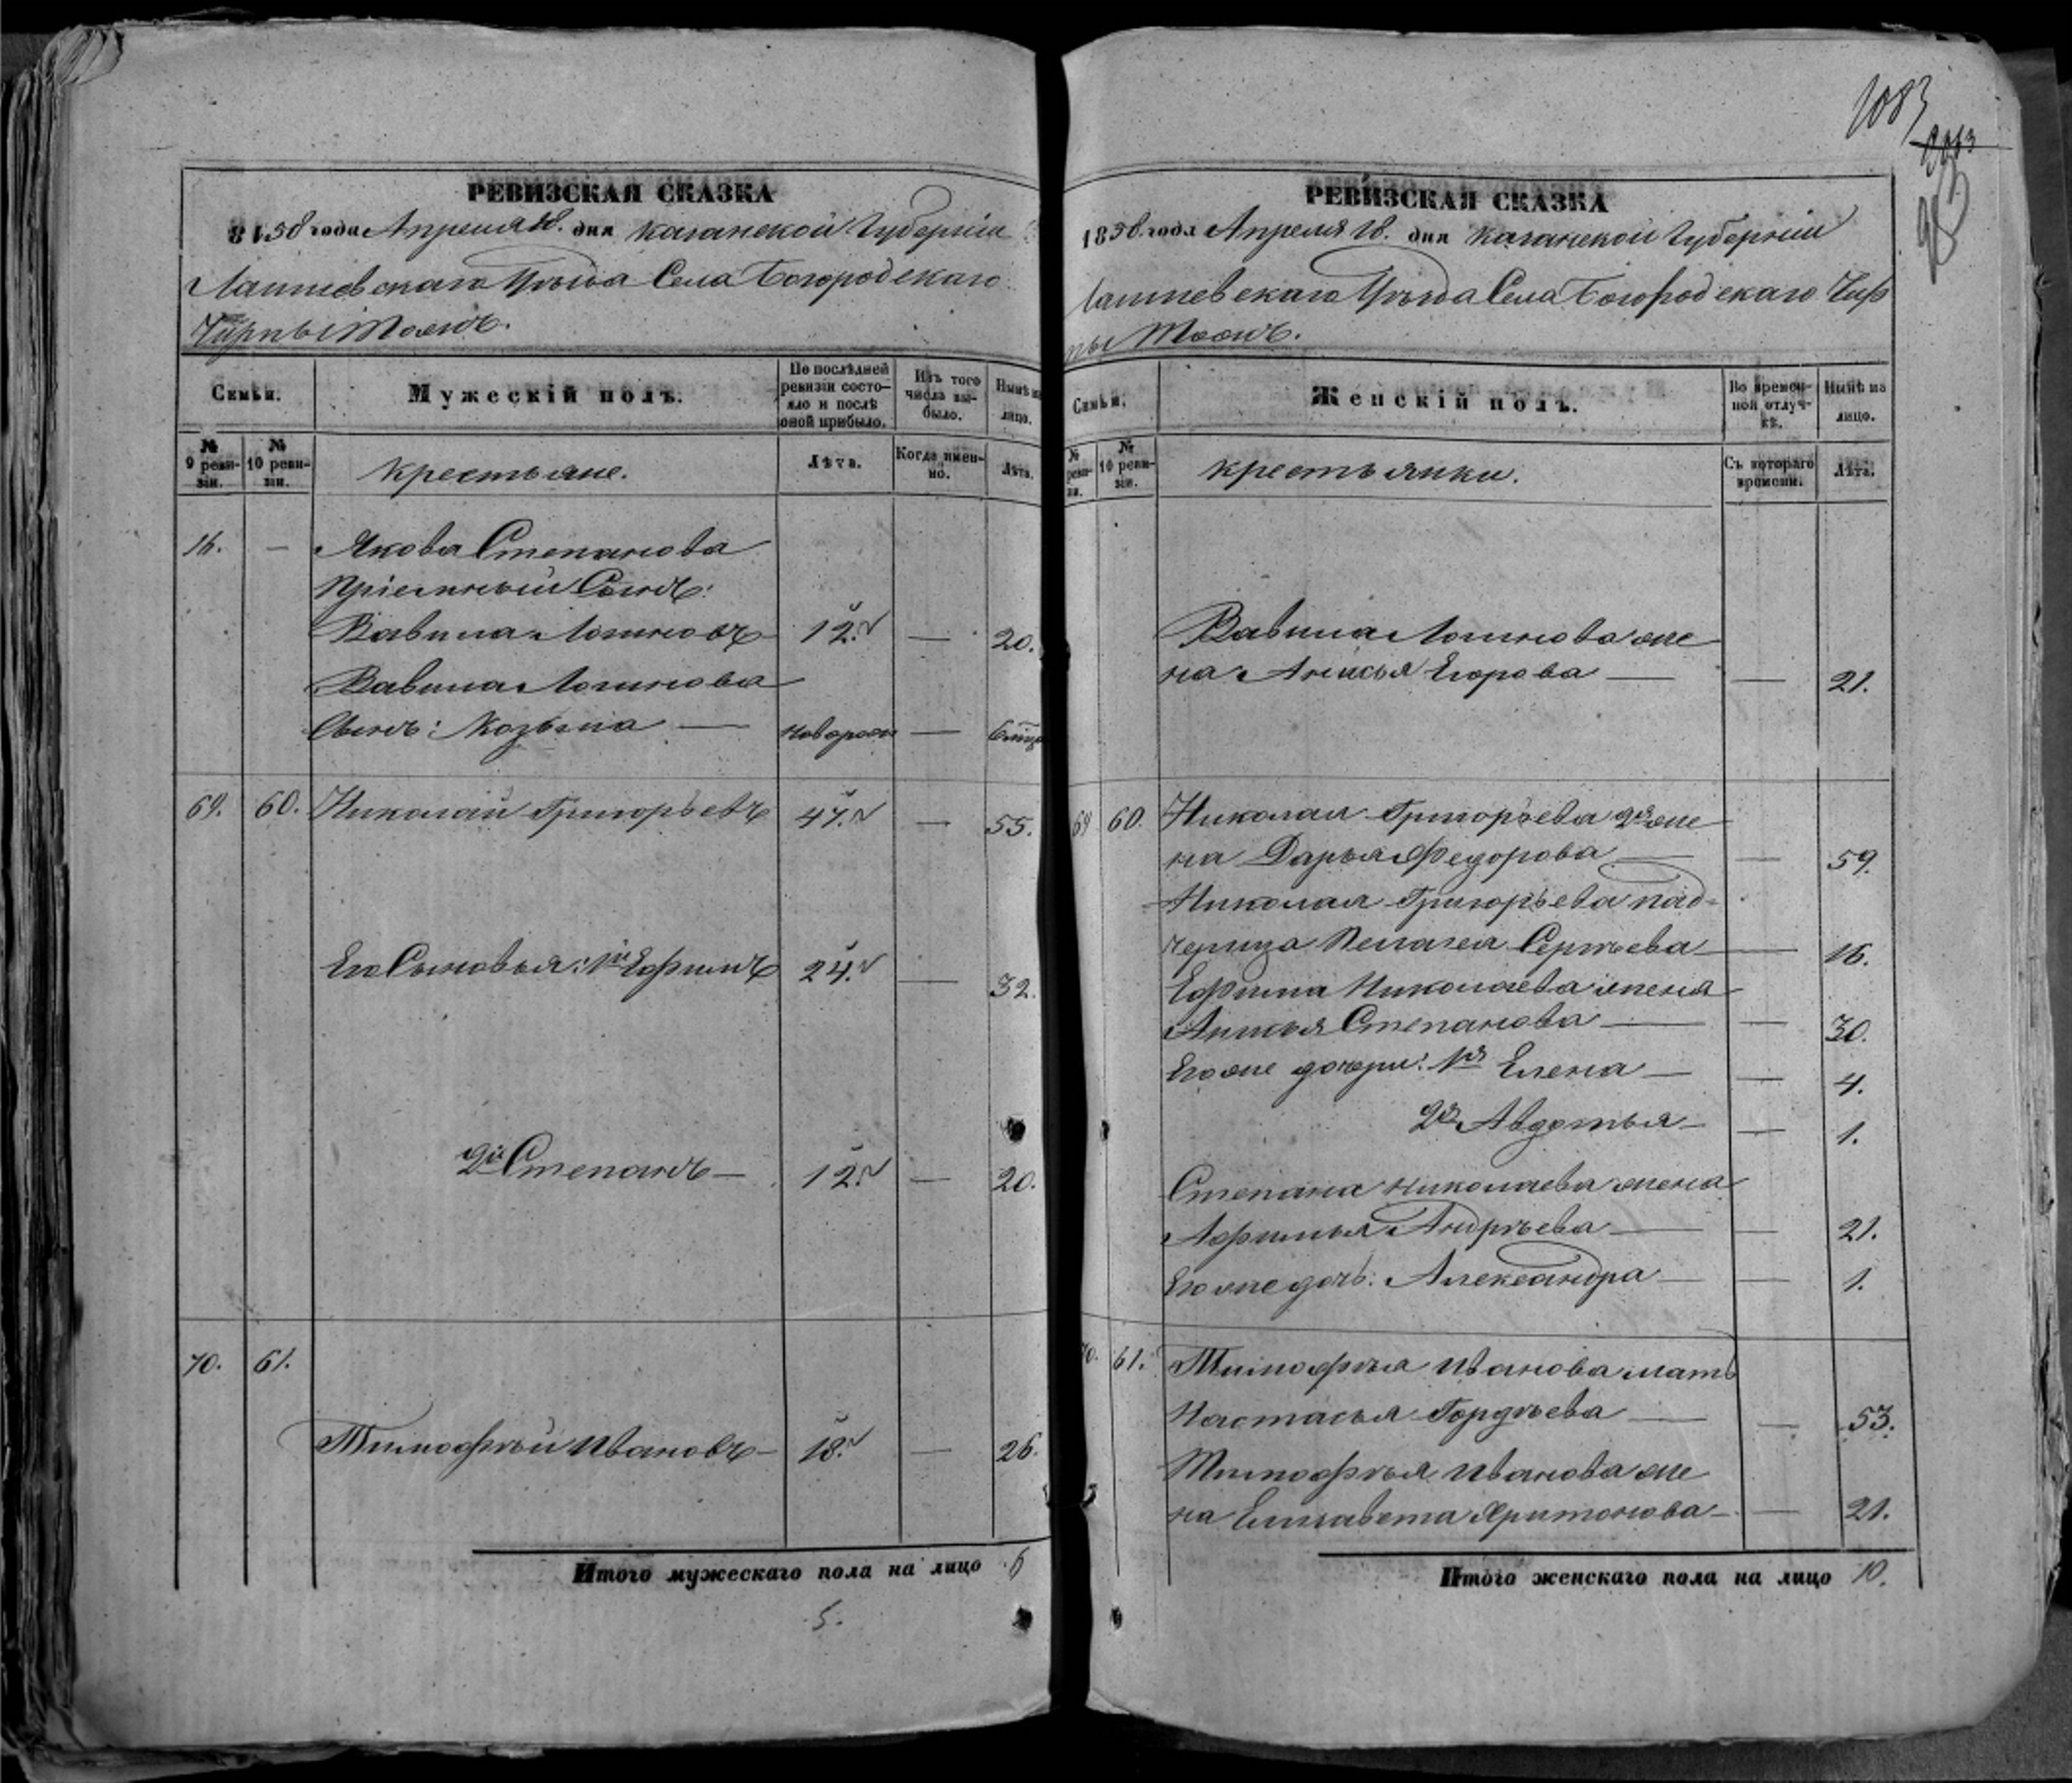 1083
РЕВИЗСКАЯ СКАЗКА
1858 года Апреля 18. дня Казанской Губерніи
Лаишевскаго Уѣзда Села Богородскаго
Чирпы тожъ.
Семьи.
Мужескій полъ.
По послѣдней ревизіи состояло и послѣ оной прибыло.
Изъ того числа выбыло.
Нынѣ на лицо.
№ 9 ревизіи.
№ 10 ревизіи.
крестьяне.
Лѣта.
Когда именно.
Лѣта.
16. — Якова Степанова
Пріемный Сынъ:
Вавила Логиновъ 12. — 20.
Вавила Логинова
Сынъ: Козьма — новорож — 6 мѣц
69. 60. Николай Григорьевъ 47. — 55.
Его Сыновья: 1й Ефимъ 24. — 32.
2й Степанъ — 12. — 20.
70. 61.
Тимофѣй Ивановъ — 18. — 26.
Итого мужескаго пола на лицо 6
5.
РЕВИЗСКАЯ СКАЗКА
1858 года Апреля 18. дня Казанской Губерніи
Лаишевскаго Уѣзда Села Богородскаго Чир
пы тожъ.
Семьи.
Женскій полъ.
Во временной отлучкѣ.
Нынѣ на лицо.
№ ревизіи.
№ 10 ревизіи.
крестьянки.
Съ котораго времени.
Лѣта.
Вавила Логинова же
на Анисья Егорова — — 21.
69 60. Николая Григорьева 2я же
на Дарья Федорова — — 59.
Николая Григорьева пад-
черица Пелагея Сергѣева — 16.
Ефима Николаева жена
Анисья Степанова — — 30.
Его же дочери: 1я Елена — — 4.
2я Авдотья — — 1.
Степана Николаева жена
Афимья Андрѣева — — 21.
Его же дочь: Александра — — 1.
70. 61. Тимофѣя Иванова мать
Настасья Гордѣева — — 53.
Тимофѣя Иванова же
на Елизавета Харитонова — — 21.
Итого женскаго пола на лицо 10.